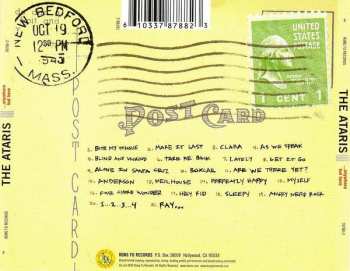 6 10337 87882 3
NEW BEDFORD
OCT 19
12 30 PM
1945
MASS.
UNITED
STATES
POSTAGE
1 CENT 1
POST CARD
POST CARD
THE ATARIS
...anywhere
but here
THE ATARIS
...anywhere
but here
KUNG FU RECORDS
1. BITE MY TONGUE 2. MAKE IT LAST 3. CLARA 4. AS WE SPEAK
5. BLIND AND UNKIND 6. TAKE ME BACK 7. LATELY 8. LET IT GO
9. ALONE IN SANTA CRUZ 10. BOXCAR 11. ARE WE THERE YET?
12. ANDERSON 13. NEILHOUSE 14. PERFECTLY HAPPY 15. MYSELF
16. FOUR CHORD WONDER 17. HEY KID 18. SLEEPY 19. ANGRY NERD ROCK
20. 1..2..3..4 21. RAY...
KUNG FU RECORDS P.O. Box 38009 Hollywood, CA 90038